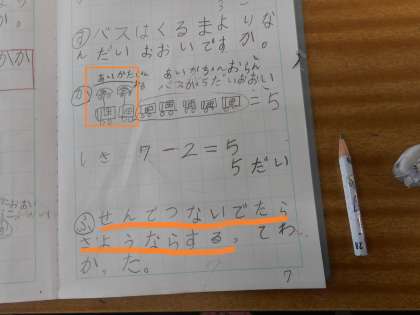 ㋜バスはくるまよりな
んだいおおいですか。
か
あいかたくん
いる
あいがちゃんおらん
バスが5だいおおい
=5
しき 7-2=5
5だい
㋫せんでつないでたら
さようならする。てわ
かった。
7